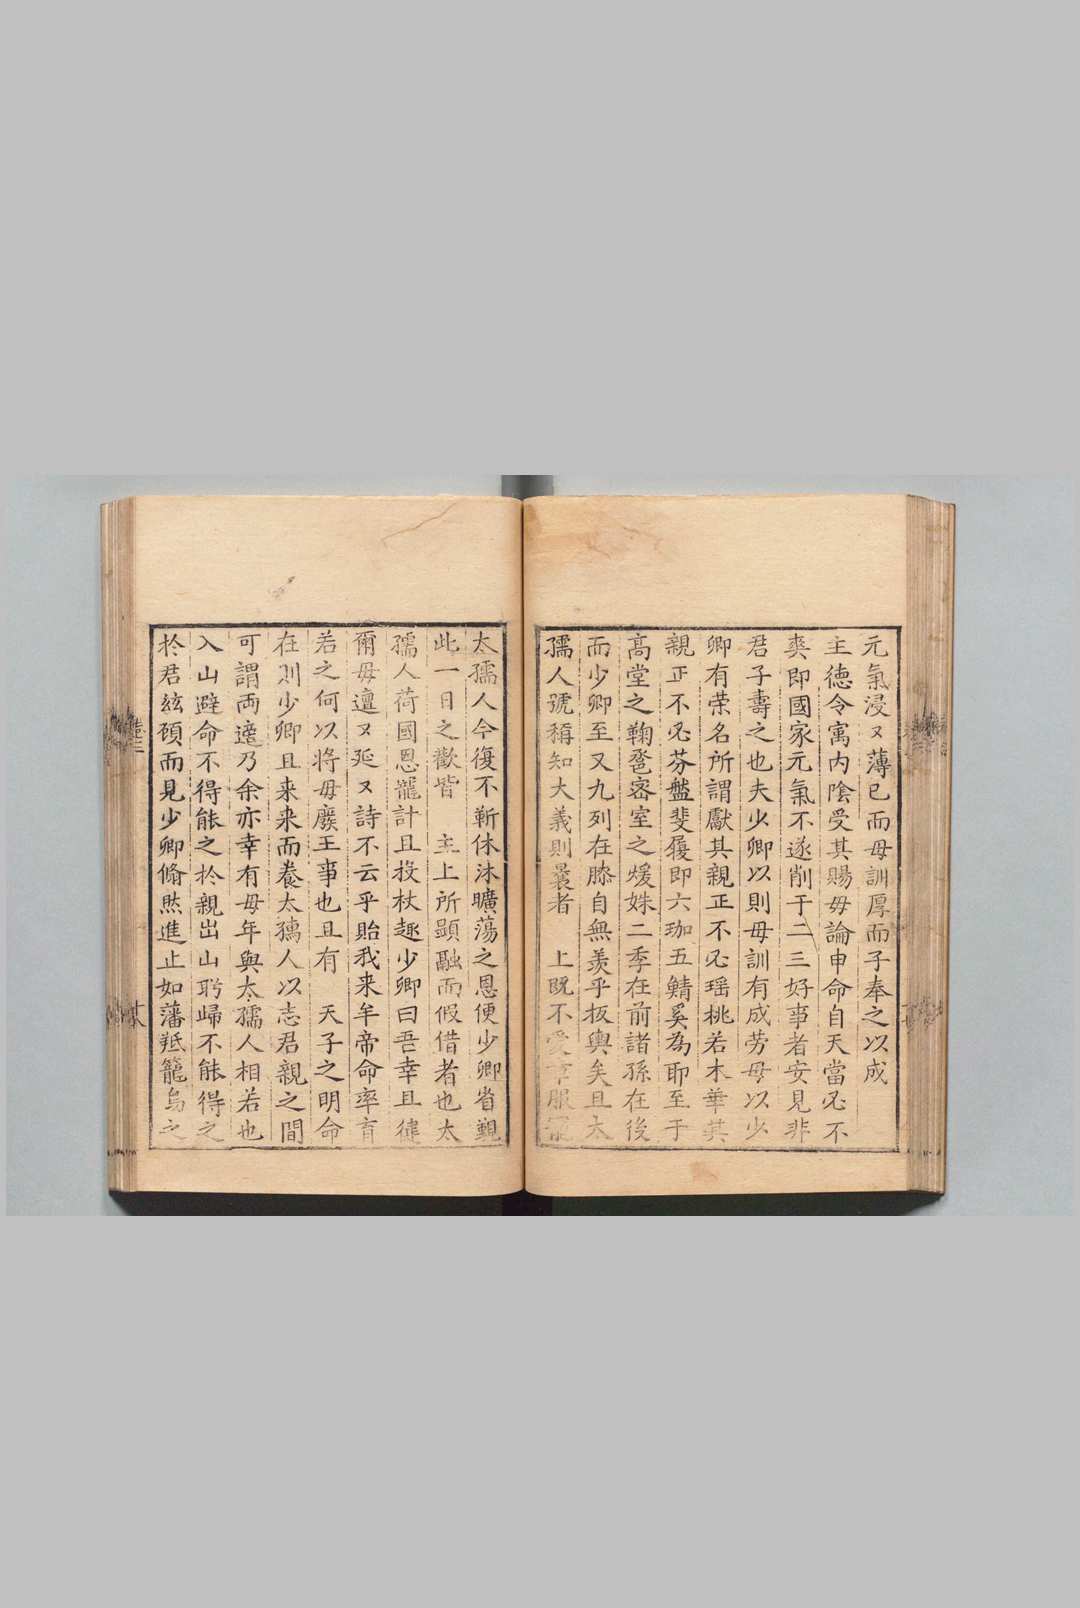 元氣浸又薄已而母訓厚而子奉之以成
主德令寓內陰受其賜毋論申命自天當必不
爽即國家元氣不遂削于二三好事者安見非
君子壽之也夫少卿以則母訓有成勞母以少
卿有荣名所謂獻其親正不必瑶桃若木華其
親正不必芬盤斐㞜即六珈五鯖奚為耶至于
高堂之鞠䣛密室之煖姝二季在前諸孫在後
而少卿至又九列在膝自無羨乎板輿矣且太
孺人號稱知大義則曩者 上既不愛章服
太孺人今復不靳休沐曠蕩之恩便少卿省覲
此一日之歡皆 主上所顕融而假借者也太
孺人荷國恩寵計且投杖趣少卿曰吾幸且徤
爾毋邅又延又詩不云乎貽我来牟帝命率育
若之何以將母廢王事也且有 天子之明命
在則少卿且来来而養太孺人以志君親之間
可謂两適乃余亦幸有母年與太孺人相若也
入山避命不得能之於親出山聆歸不能得之
於君絃頋而見少卿翛然進止如藩羝籠鳥之
卷三